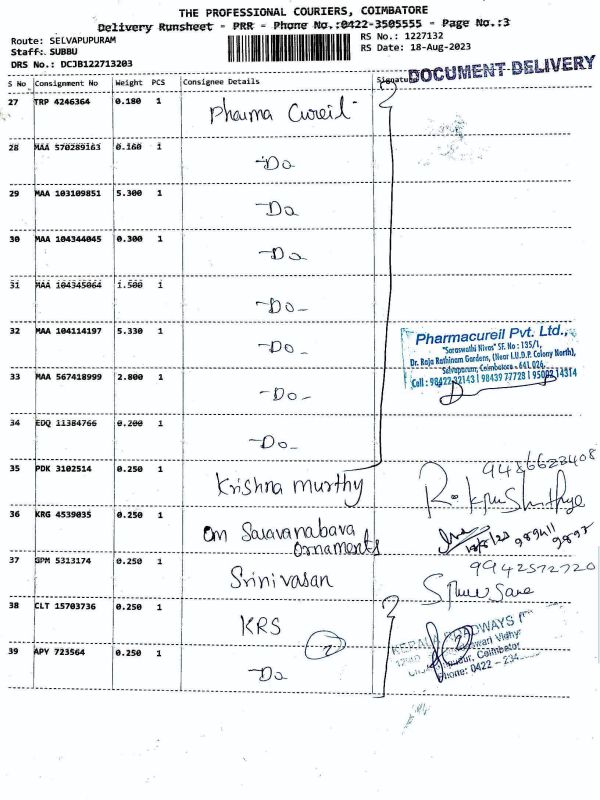 THE PROFESSIONAL COURIERS, COIMBATORE
Delivery Runsheet - PRR - Phone No.:0422-3505555 - Page No.:3
Route: SELVAPUPURAM
Staff: SUBBU
DRS No.: DCJB122713203
RS No.: 1227132
RS Date: 18-Aug-2023
DOCUMENT DELIVERY
S No Consignment No Weight PCS Consignee Details Signature
27 TRP 4246364 0.180 1 Pharma Cureil
28 MAA 570289163 0.160 1 -Do
29 MAA 103109851 5.300 1 -Do
30 MAA 104344045 0.300 1 -Do
31 MAA 104345064 1.500 1 -Do-
32 MAA 104114197 5.330 1 -Do-
Pharmacureil Pvt. Ltd.,
"Saraswathi Nivas" SF. No : 135/1,
Dr. Raja Rathinam Gardens, (Near I.U.D.P. Colony North),
Selvapuram, Coimbatore - 641 026.
Cell : 98422 22143 | 98439 77728 | 95002 14314
33 MAA 567418999 2.800 1 -Do-
34 EDQ 11384766 0.200 1 -Do-
35 PDK 3102514 0.250 1 Krishna murthy
9486623408
36 KRG 4539035 0.250 1 Om Saravanabava
Ornaments
37 GPM 5313174 0.250 1 Srinivasan
9942572720
38 CLT 15703736 0.250 1 KRS
2
KERALA ROADWAYS
Coimbator
Phone: 0422 - 234
39 APY 723564 0.250 1 Do